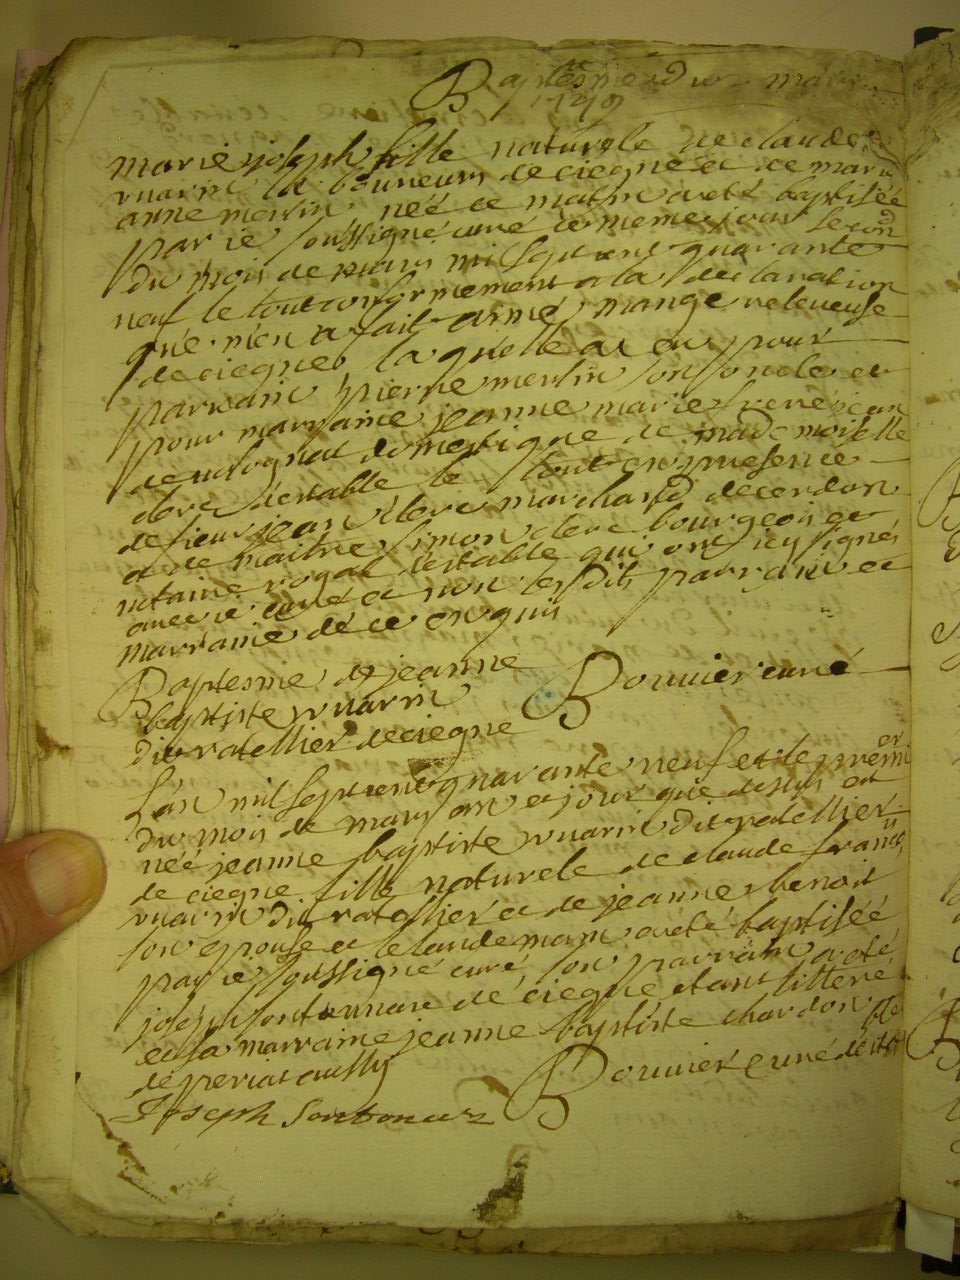 Baptesme du 2 mars
1749
marie joseph fille naturele de claude
vuarin laboureur de ciegne et de marie
anne merlin née ce matin a eté baptisée
par ie soussigné curé ce meme jour second
du mois de mars mil sept cent quarante
neuf le tout conformement a la declaration
que m'en a fait aimé mange releveuse
de ciegnes laquelle a eu pour
parrain pierre merlin son oncle et
pour marraine jeanne marie
domestique de mademoiselle
clerc lestable le tout en presence
de sieur jean clerc marchand de cerdon
et de maitre simon clerc bourgeois et
notaire royal lestable qui ont icy signés
avec ie curé et non lesdits parrain et
marraine de ce enquis
Baptesme de jeanne Bouvier curé
baptiste vuarin
dit ratellier de ciegne
L'an mil sept cent quarante neuf et le premier
du mois de mars an et jour que dessus est
née jeanne baptiste vuarin dit ratellier
de ciegne fille naturele de claude francois
vuarin dit ratellier et de jeanne benoit
son epouse et le landemain a eté baptisée
par ie soussigné curé, son parrain a eté
joseph de ciegne etant litteré
et sa marraine jeanne baptiste chardon fille
de periat aussy
Joseph Bouvier curé